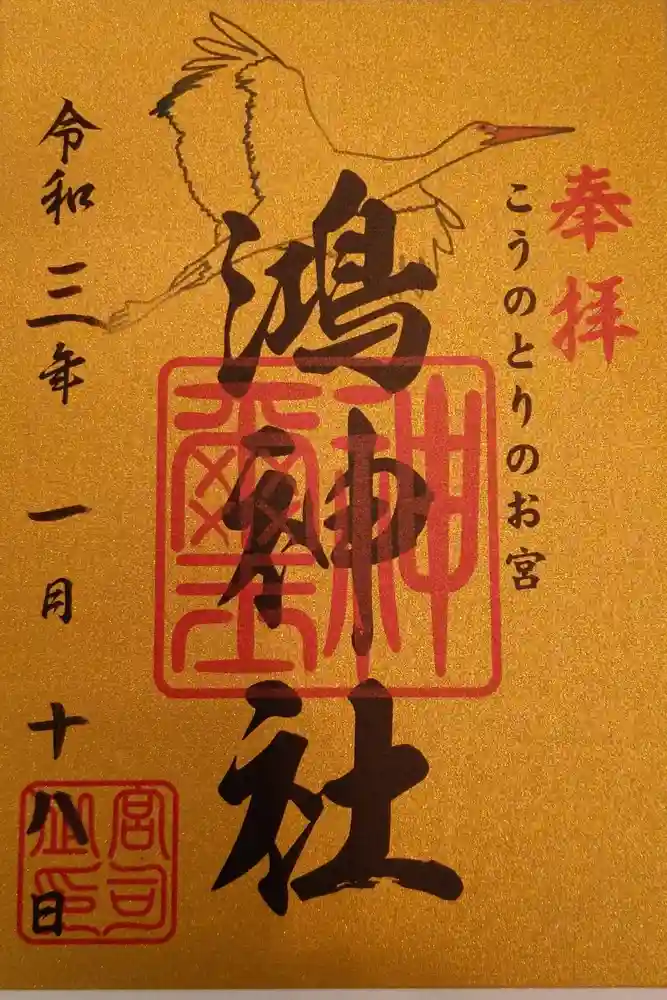 奉拝
こうのとりのお宮
鴻神社
神璽
令和三年一月十八日
宮司之印